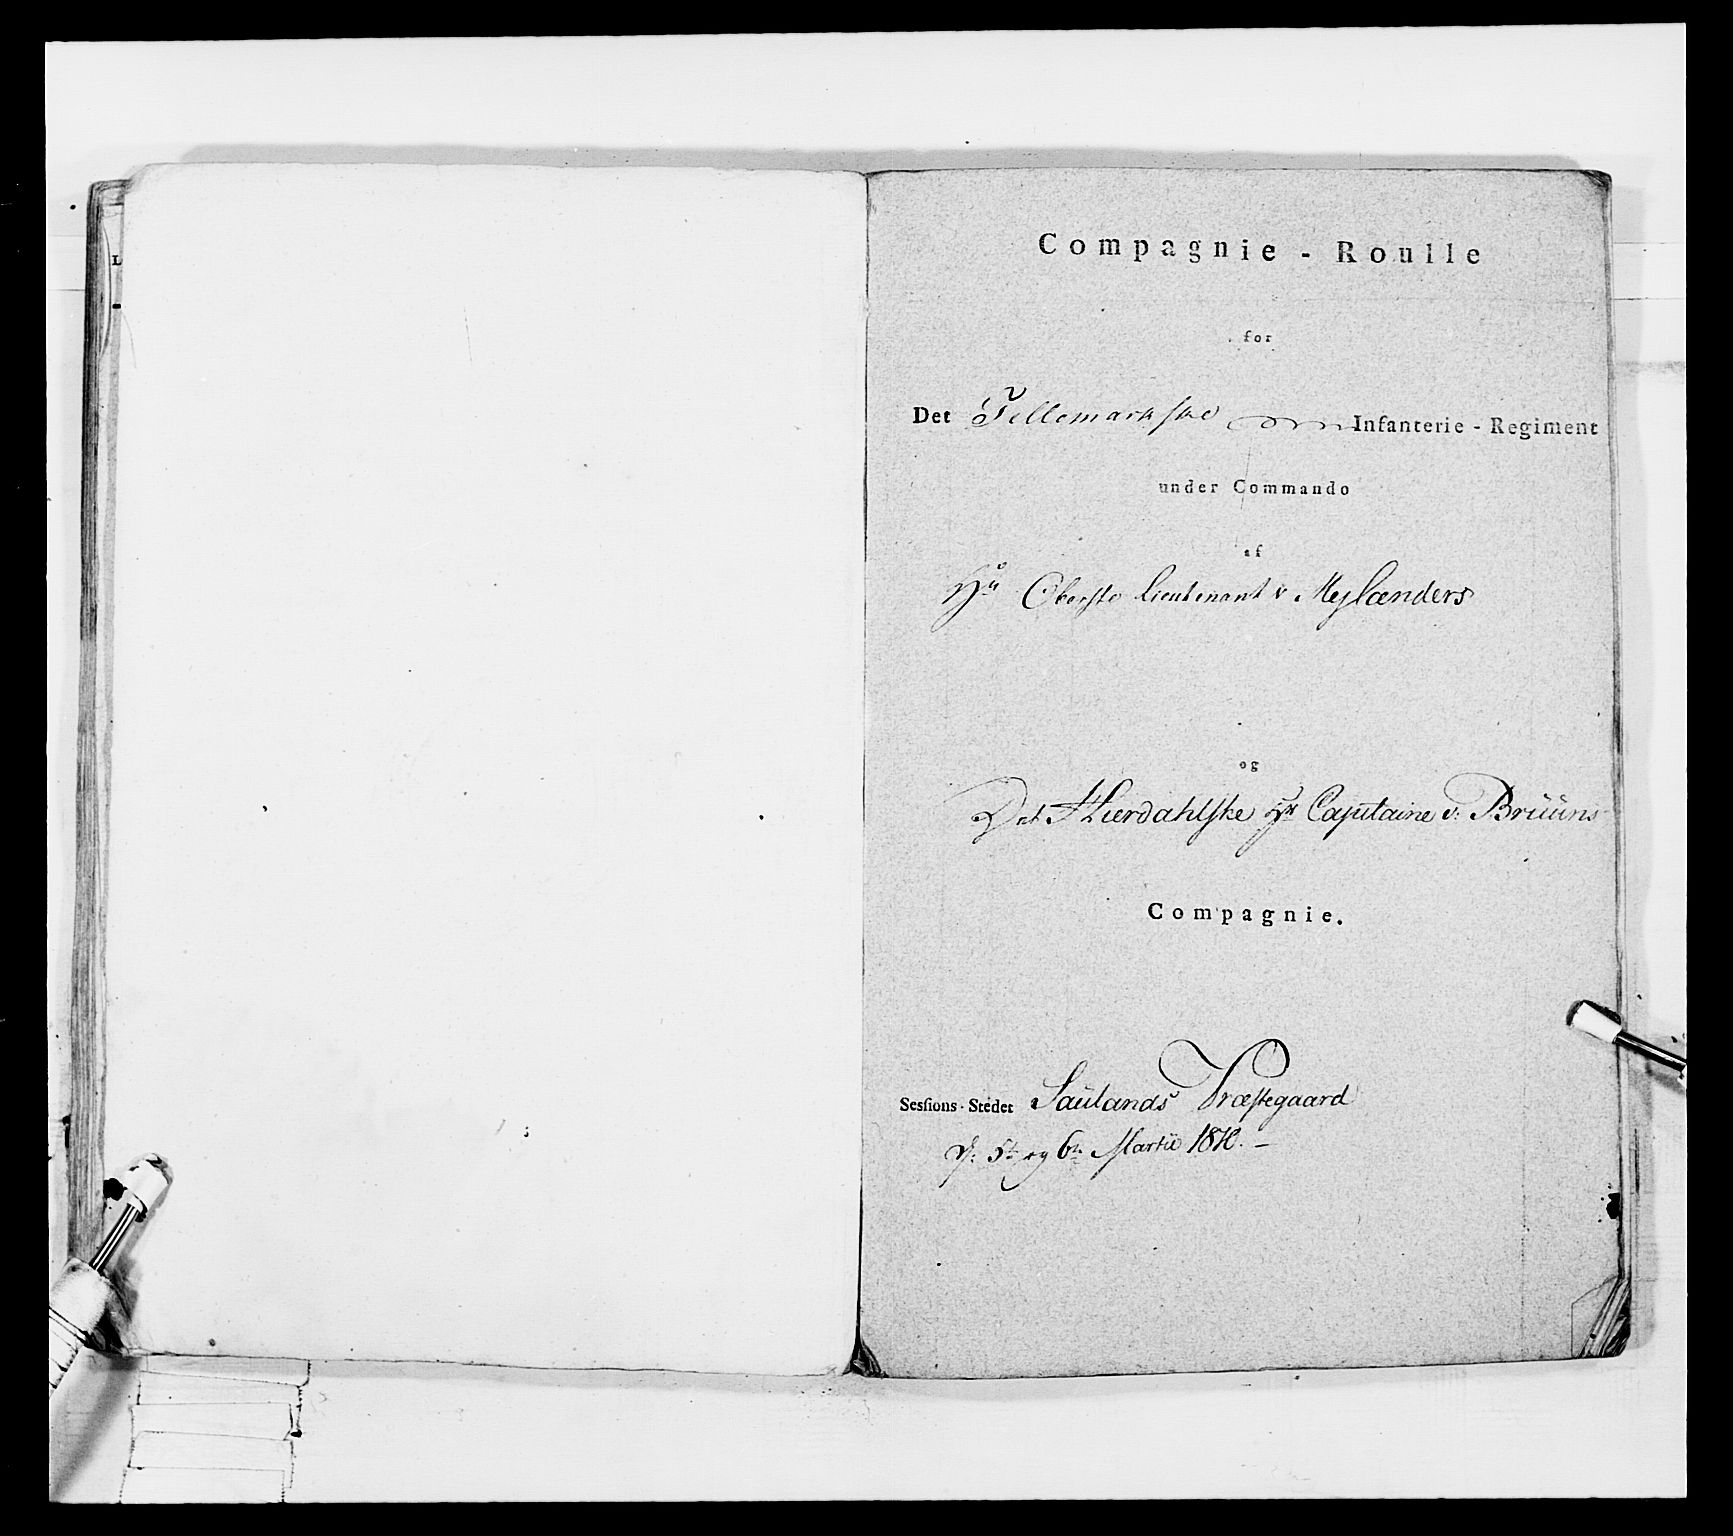 Compagnie - Roulle
for
Det Tellemarkske Infanterie - Regiment
under Commando
af
Hr Oberste Lieutenant v Mylænders
og
Det Hierdahlske Hr Capitaine v: Brüüns
Compagnie.
Sessions-Stedet Saülands Præstegaard
d: 5te og 6te Martii 1810. -